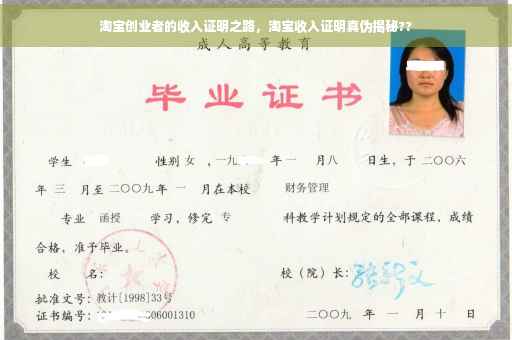 淘宝创业者的收入证明之路，淘宝收入证明真伪揭秘??
成人高等教育
毕业证书
学生 性别 女 ，一九 年一 月八 日生，于二〇〇六
年 三 月至二〇〇九年 一 月在本校 财务管理
专业 函授 学习，修完 专 科教学计划规定的全部课程，成绩
合格，准予毕业。
校 名： 校（院）长：
批准文号：教计[1998]33号
证书编号： 606001310 二〇〇九 年 一 月 十 日